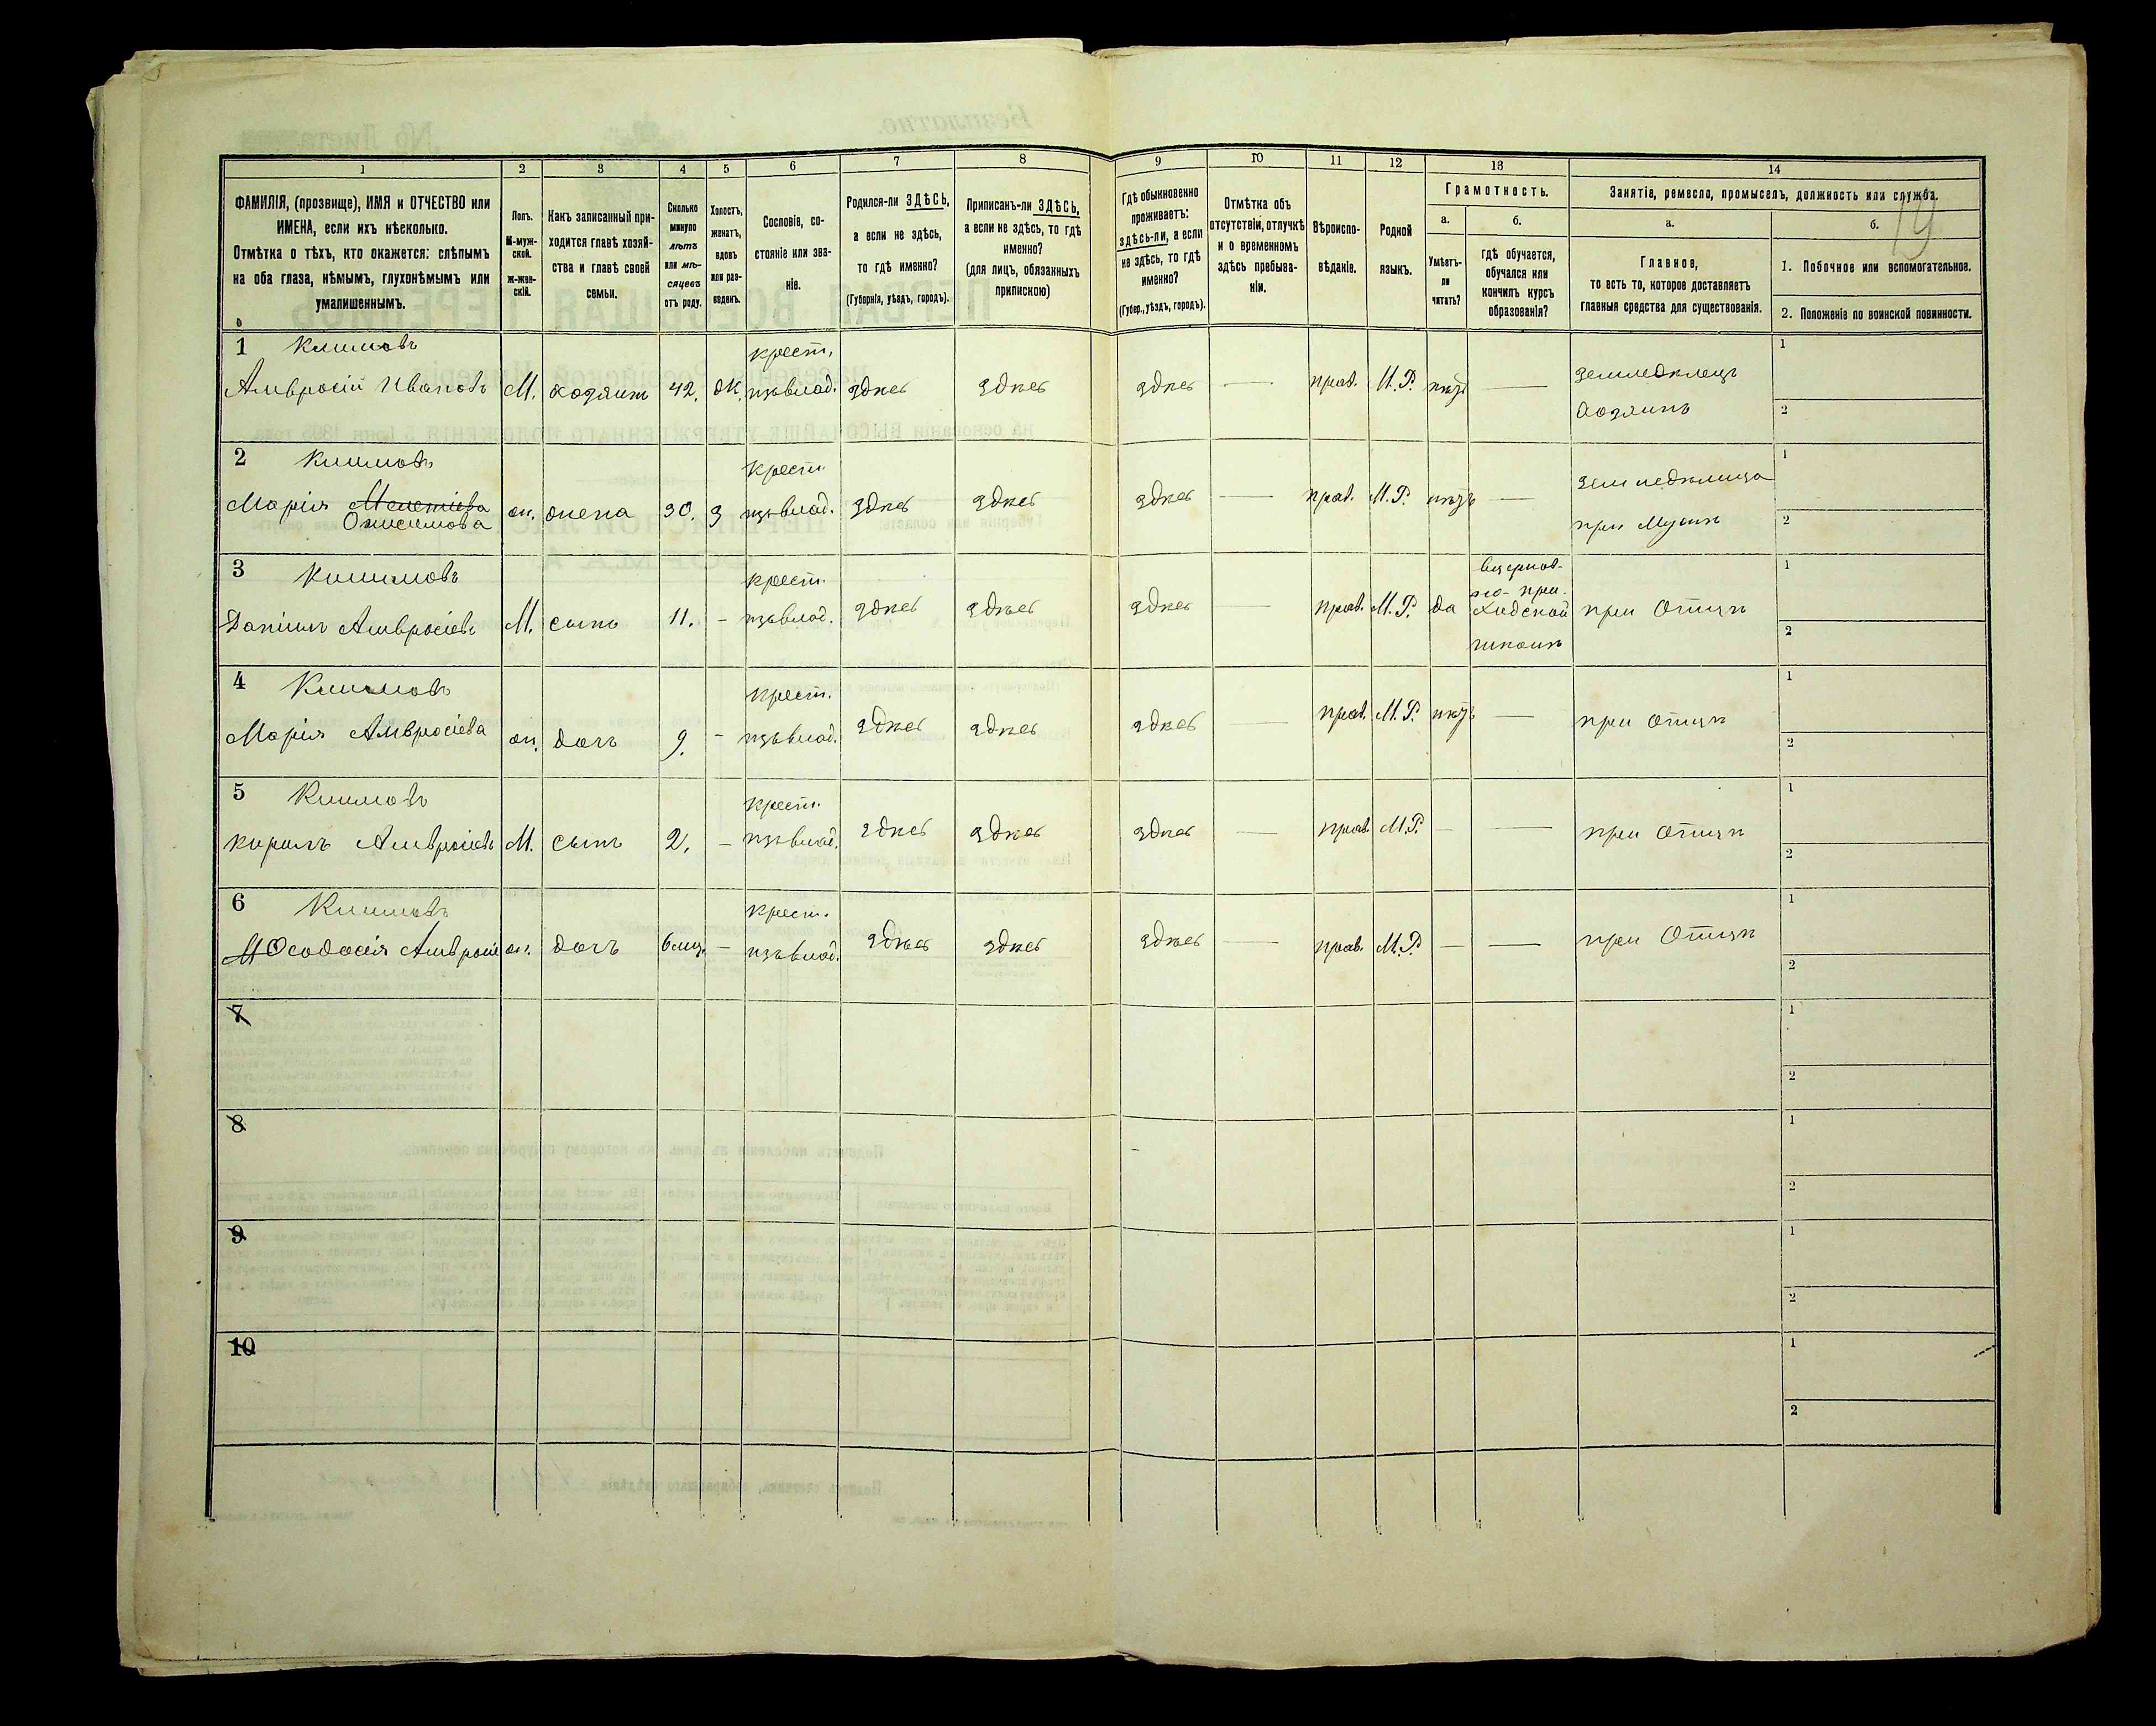 19
1 2 3 4 5 6 7 8 9 10 11 12 13 14
ФАМИЛІЯ, (прозвище), ИМЯ и ОТЧЕСТВО или
ИМЕНА, если ихъ нѣсколько.
Отмѣтка о тѣхъ, кто окажется: слѣпымъ
на оба глаза, нѣмымъ, глухонѣмымъ или
умалишеннымъ.
Полъ.
М-муж-
ской.
ж-жен-
скій.
Какъ записанный при-
ходится главѣ хозяй-
ства и главѣ своей
семьи.
Сколько
минуло
лѣтъ
или мѣ-
сяцевъ
отъ роду.
Холостъ,
женатъ,
вдовъ
или раз-
веденъ.
Сословіе, со-
стояніе или зва-
ніе.
Родился-ли ЗДѢСЬ,
а если не здѣсь,
то гдѣ именно?
(Губернія, уѣздъ, городъ).
Приписанъ-ли ЗДѢСЬ,
а если не здѣсь, то гдѣ
именно?
(для лицъ, обязанныхъ
припискою)
Гдѣ обыкновенно
проживаетъ:
здѣсь-ли, а если
не здѣсь, то гдѣ
именно?
(Губер., уѣздъ, городъ).
Отмѣтка объ
отсутствіи, отлучкѣ
и о временномъ
здѣсь пребыва-
ніи.
Вѣроиспо-
вѣданіе.
Родной
языкъ.
Грамотность.
а.
Умѣетъ-
ли
читать?
б.
гдѣ обучается,
обучался или
кончилъ курсъ
образованія?
Занятіе, ремесло, промыселъ, должность или служба.
а.
Главное,
то есть то, которое доставляетъ
главныя средства для существованія.
б.
1. Побочное или вспомогательное.
2. Положеніе по воинской повинности.
1 Климовъ крест. 1
Амвросій Ивановъ М. хозяинъ 42. ж. изъ влад. здѣсь здѣсь здѣсь — прав. М.Р. нѣтъ — земледѣлецъ
хозяинъ 2
2 Климовъ крест. 1
Марія Мелетіева ж. жена 30. з изъ влад. здѣсь здѣсь здѣсь — прав. М.Р. нѣтъ — земледѣлица
Онисимова при мужѣ 2
3 Климовъ крест. 1
Даніилъ Амвросіевъ М. сынъ 11. - изъ влад. здѣсь здѣсь здѣсь — прав. М.Р. да
въ церков-
но-при-
ходской
школѣ
при отцѣ 2
4 Климовъ крест. 1
Марія Амвросіева ж. дочь 9. - изъ влад. здѣсь здѣсь здѣсь — прав. М.Р. нѣтъ — при отцѣ 2
5 Климовъ крест. 1
Кирилъ Амвросіевъ М. сынъ 2. - изъ влад. здѣсь здѣсь здѣсь — прав. М.Р. — — при отцѣ 2
6 Климовъ крест. 1
Ѳеодосія Амвросіе ж. дочь 6 мѣс. — изъ влад. здѣсь здѣсь здѣсь — прав. М.Р. — — при отцѣ 2
7 1
2
8 1
2
9 1
2
10 1
2